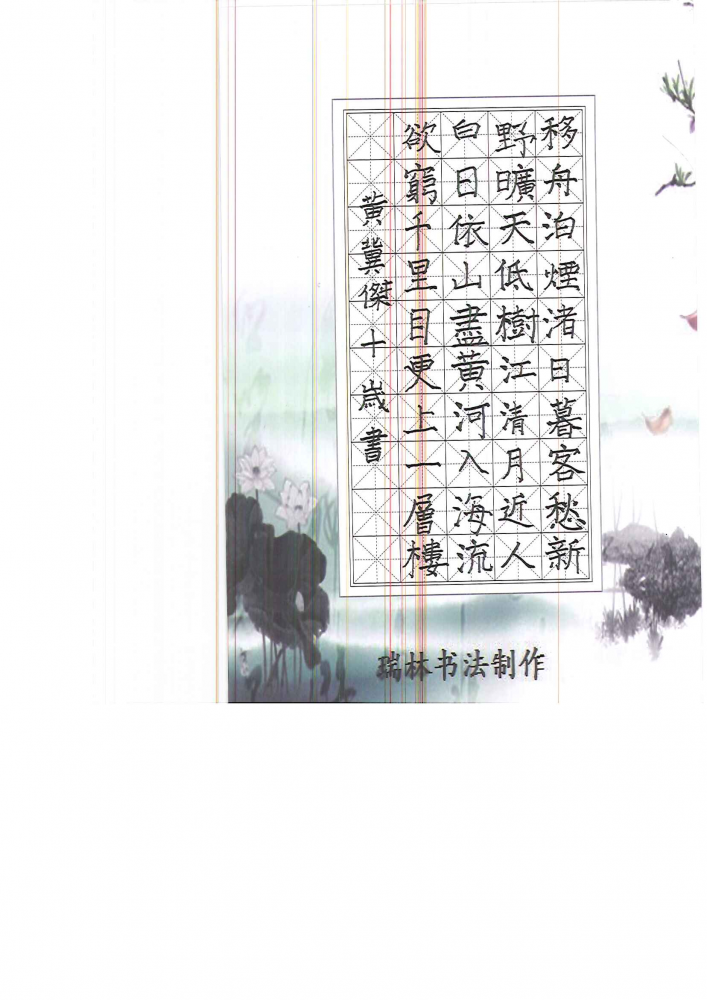 移舟泊煙渚日暮客愁新
野曠天低樹江清月近人
白日依山盡黄河入海流
欲窮千里目更上一層樓
黄冀傑十歲書
瑞林书法制作